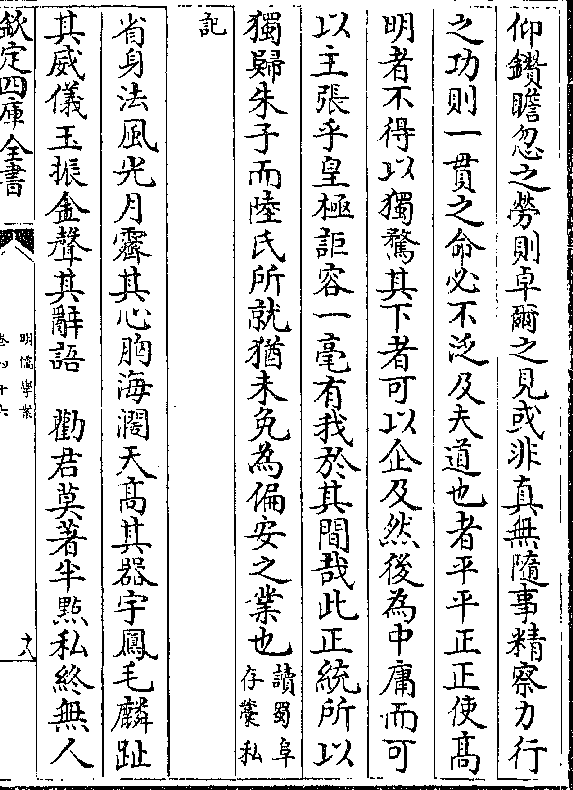 仰鑽瞻忽之勞則卓爾之見或非真無隨事精察力行
之功則一貫之命必不泛及夫道也者平平正正使高
明者不得以獨騖其下者可以企及然後為中庸而可
以主張乎皇極詎容一毫有我於其間哉此正統所以
獨歸朱子而陸氏所就猶未免為偏安之業也讀蜀阜
存藁私
記
省身法風光月霽其心胸海濶天高其器宇鳳毛麟趾
其威儀玉振金聲其辭語　勸君莫著半㸃私終無人
欽定四庫全書
明儒學案
卷四十六
十八